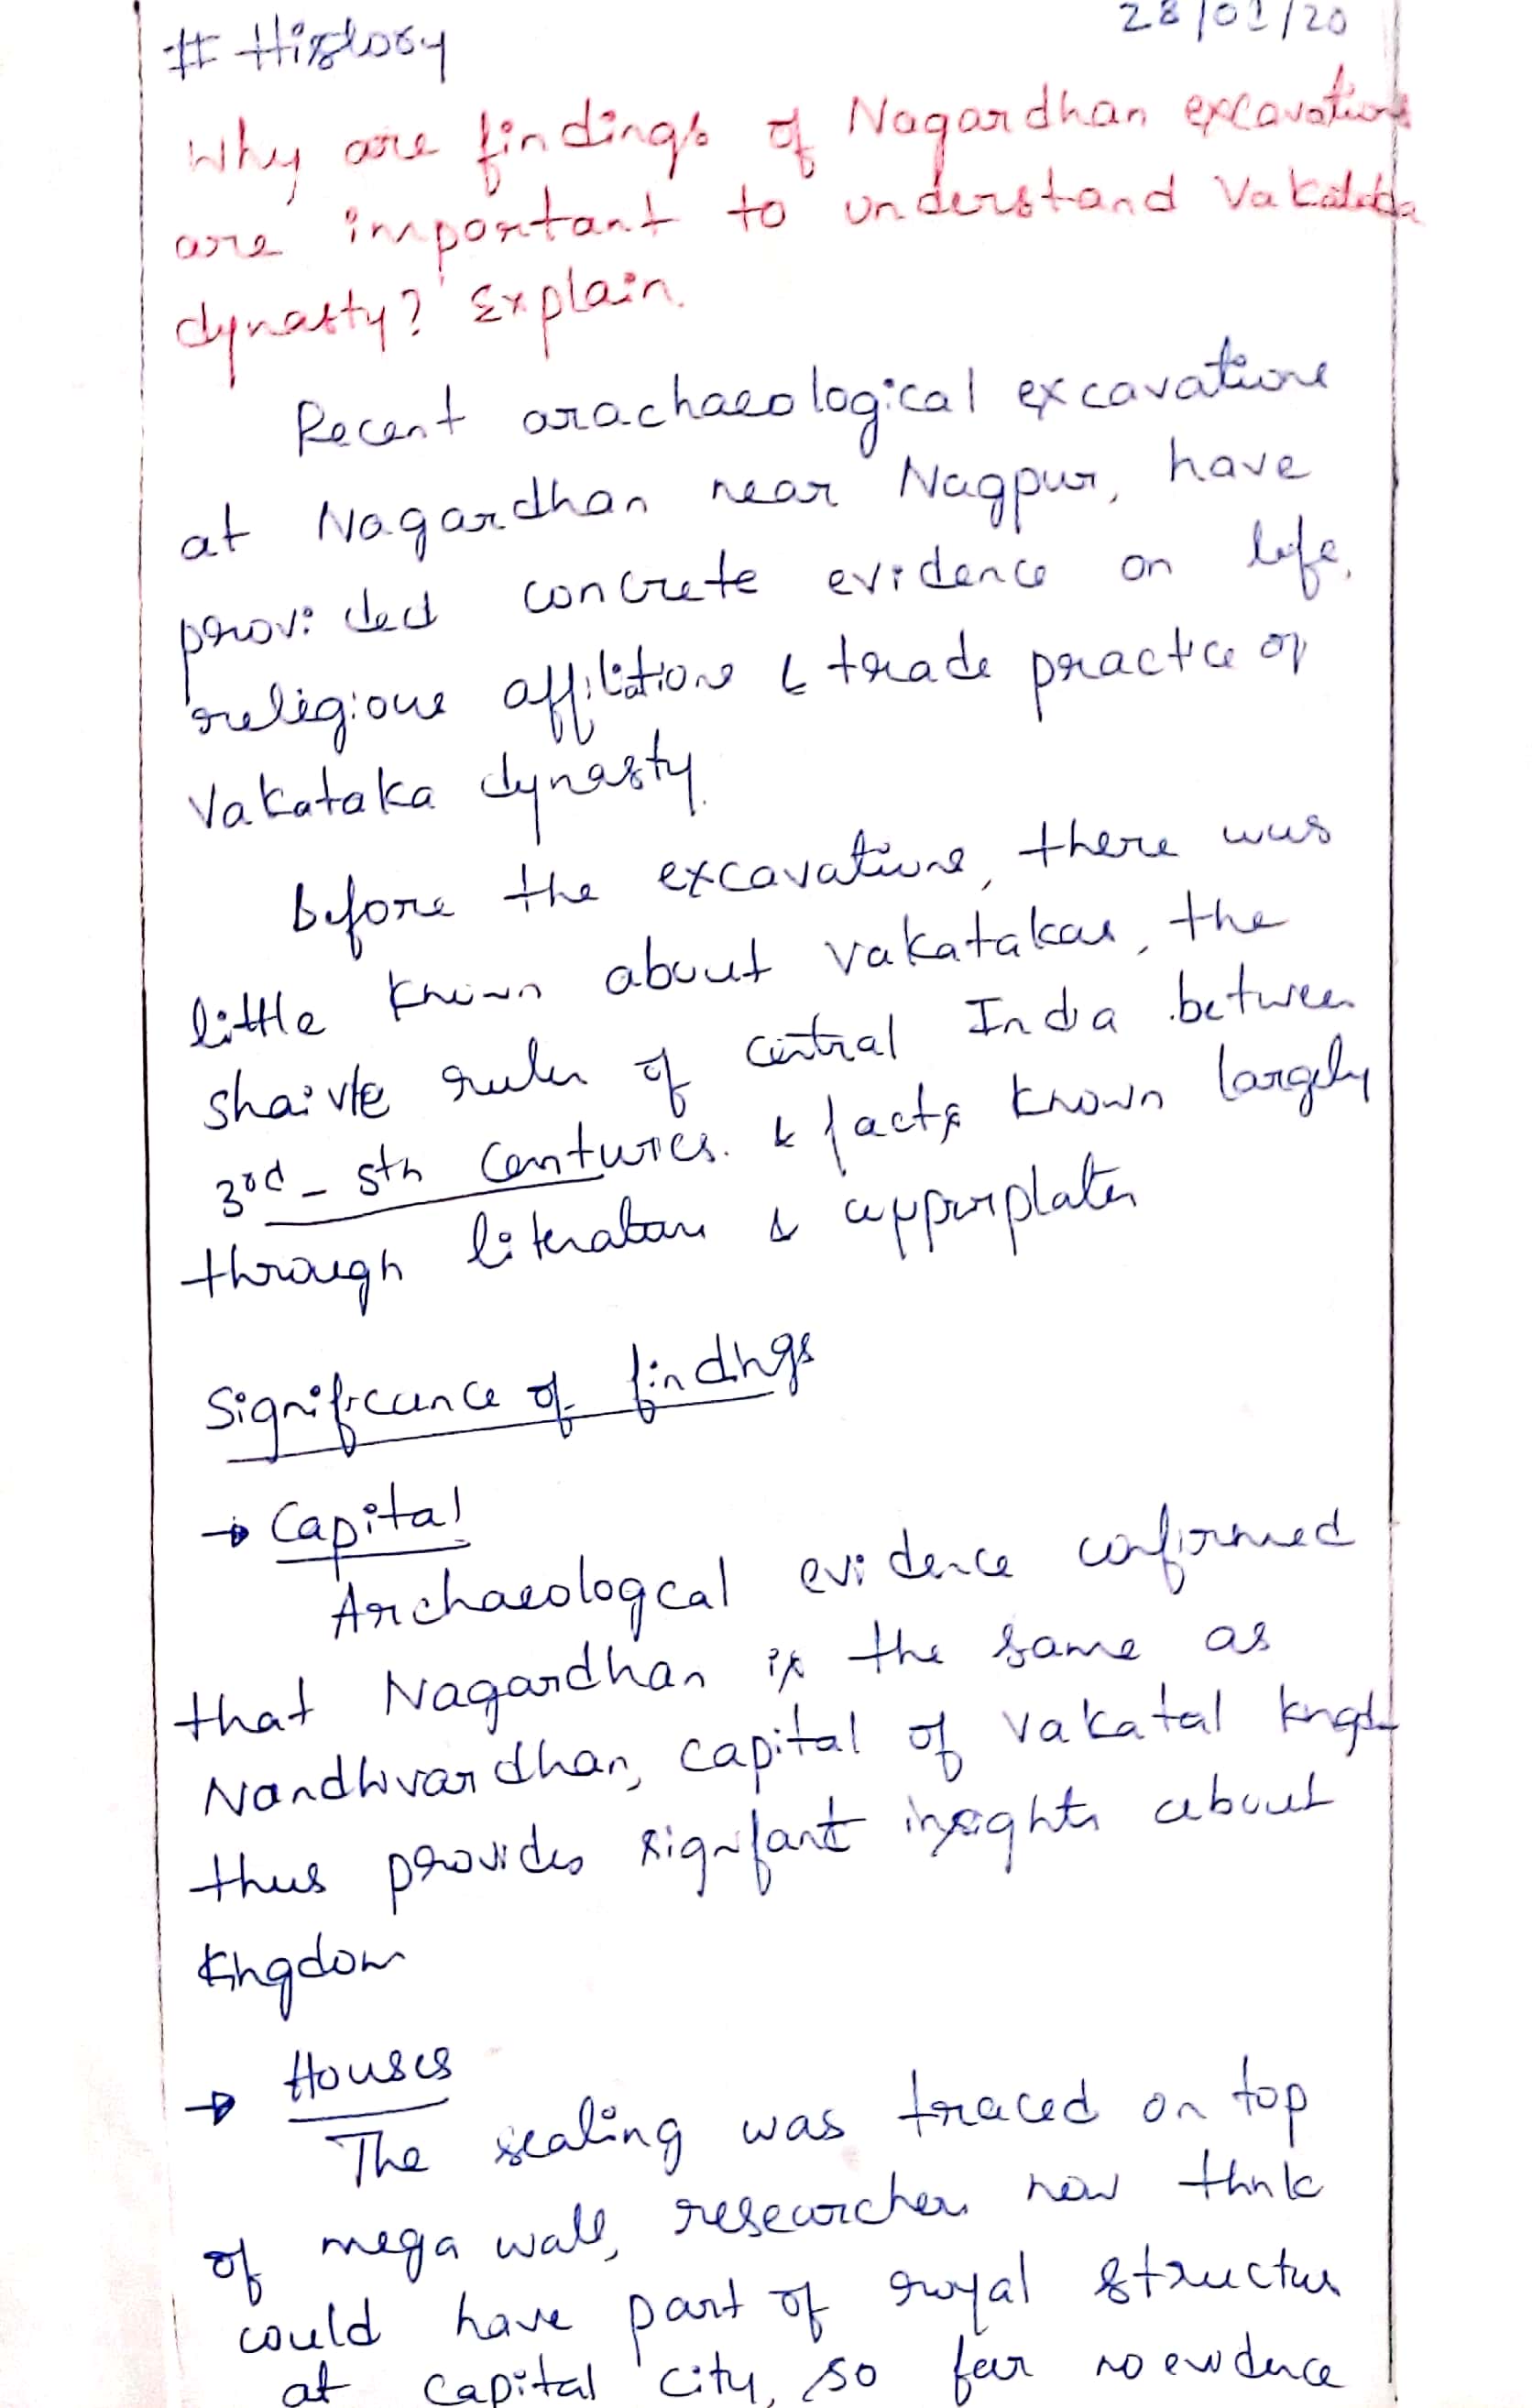 # History
28/01/20
Why are findings of Nagardhan excavations
are important to understand Vakataka
dynasty? Explain.
Recent arachaeological excavations
at Nagardhan near Nagpur, have
provided concrete evidence on life,
religious affilations & trade practice of
Vakataka dynasty.
before the excavations, there was
little known about vakatakas, the
shaivte ruler of central India between
3rd - 5th Centuries. & facts known largely
through literature & copperplates
Significance of findings
→ Capital
Archaeologcal evidence confirmed
that Nagardhan is the same as
Nandhivardhan, capital of vakatal kngd
thus provides signifant insights about
Kingdom
→ Houses
The sealing was traced on top
of mega wall, researchers now thnk
could have part of royal structure
at capital city, so far no evidence